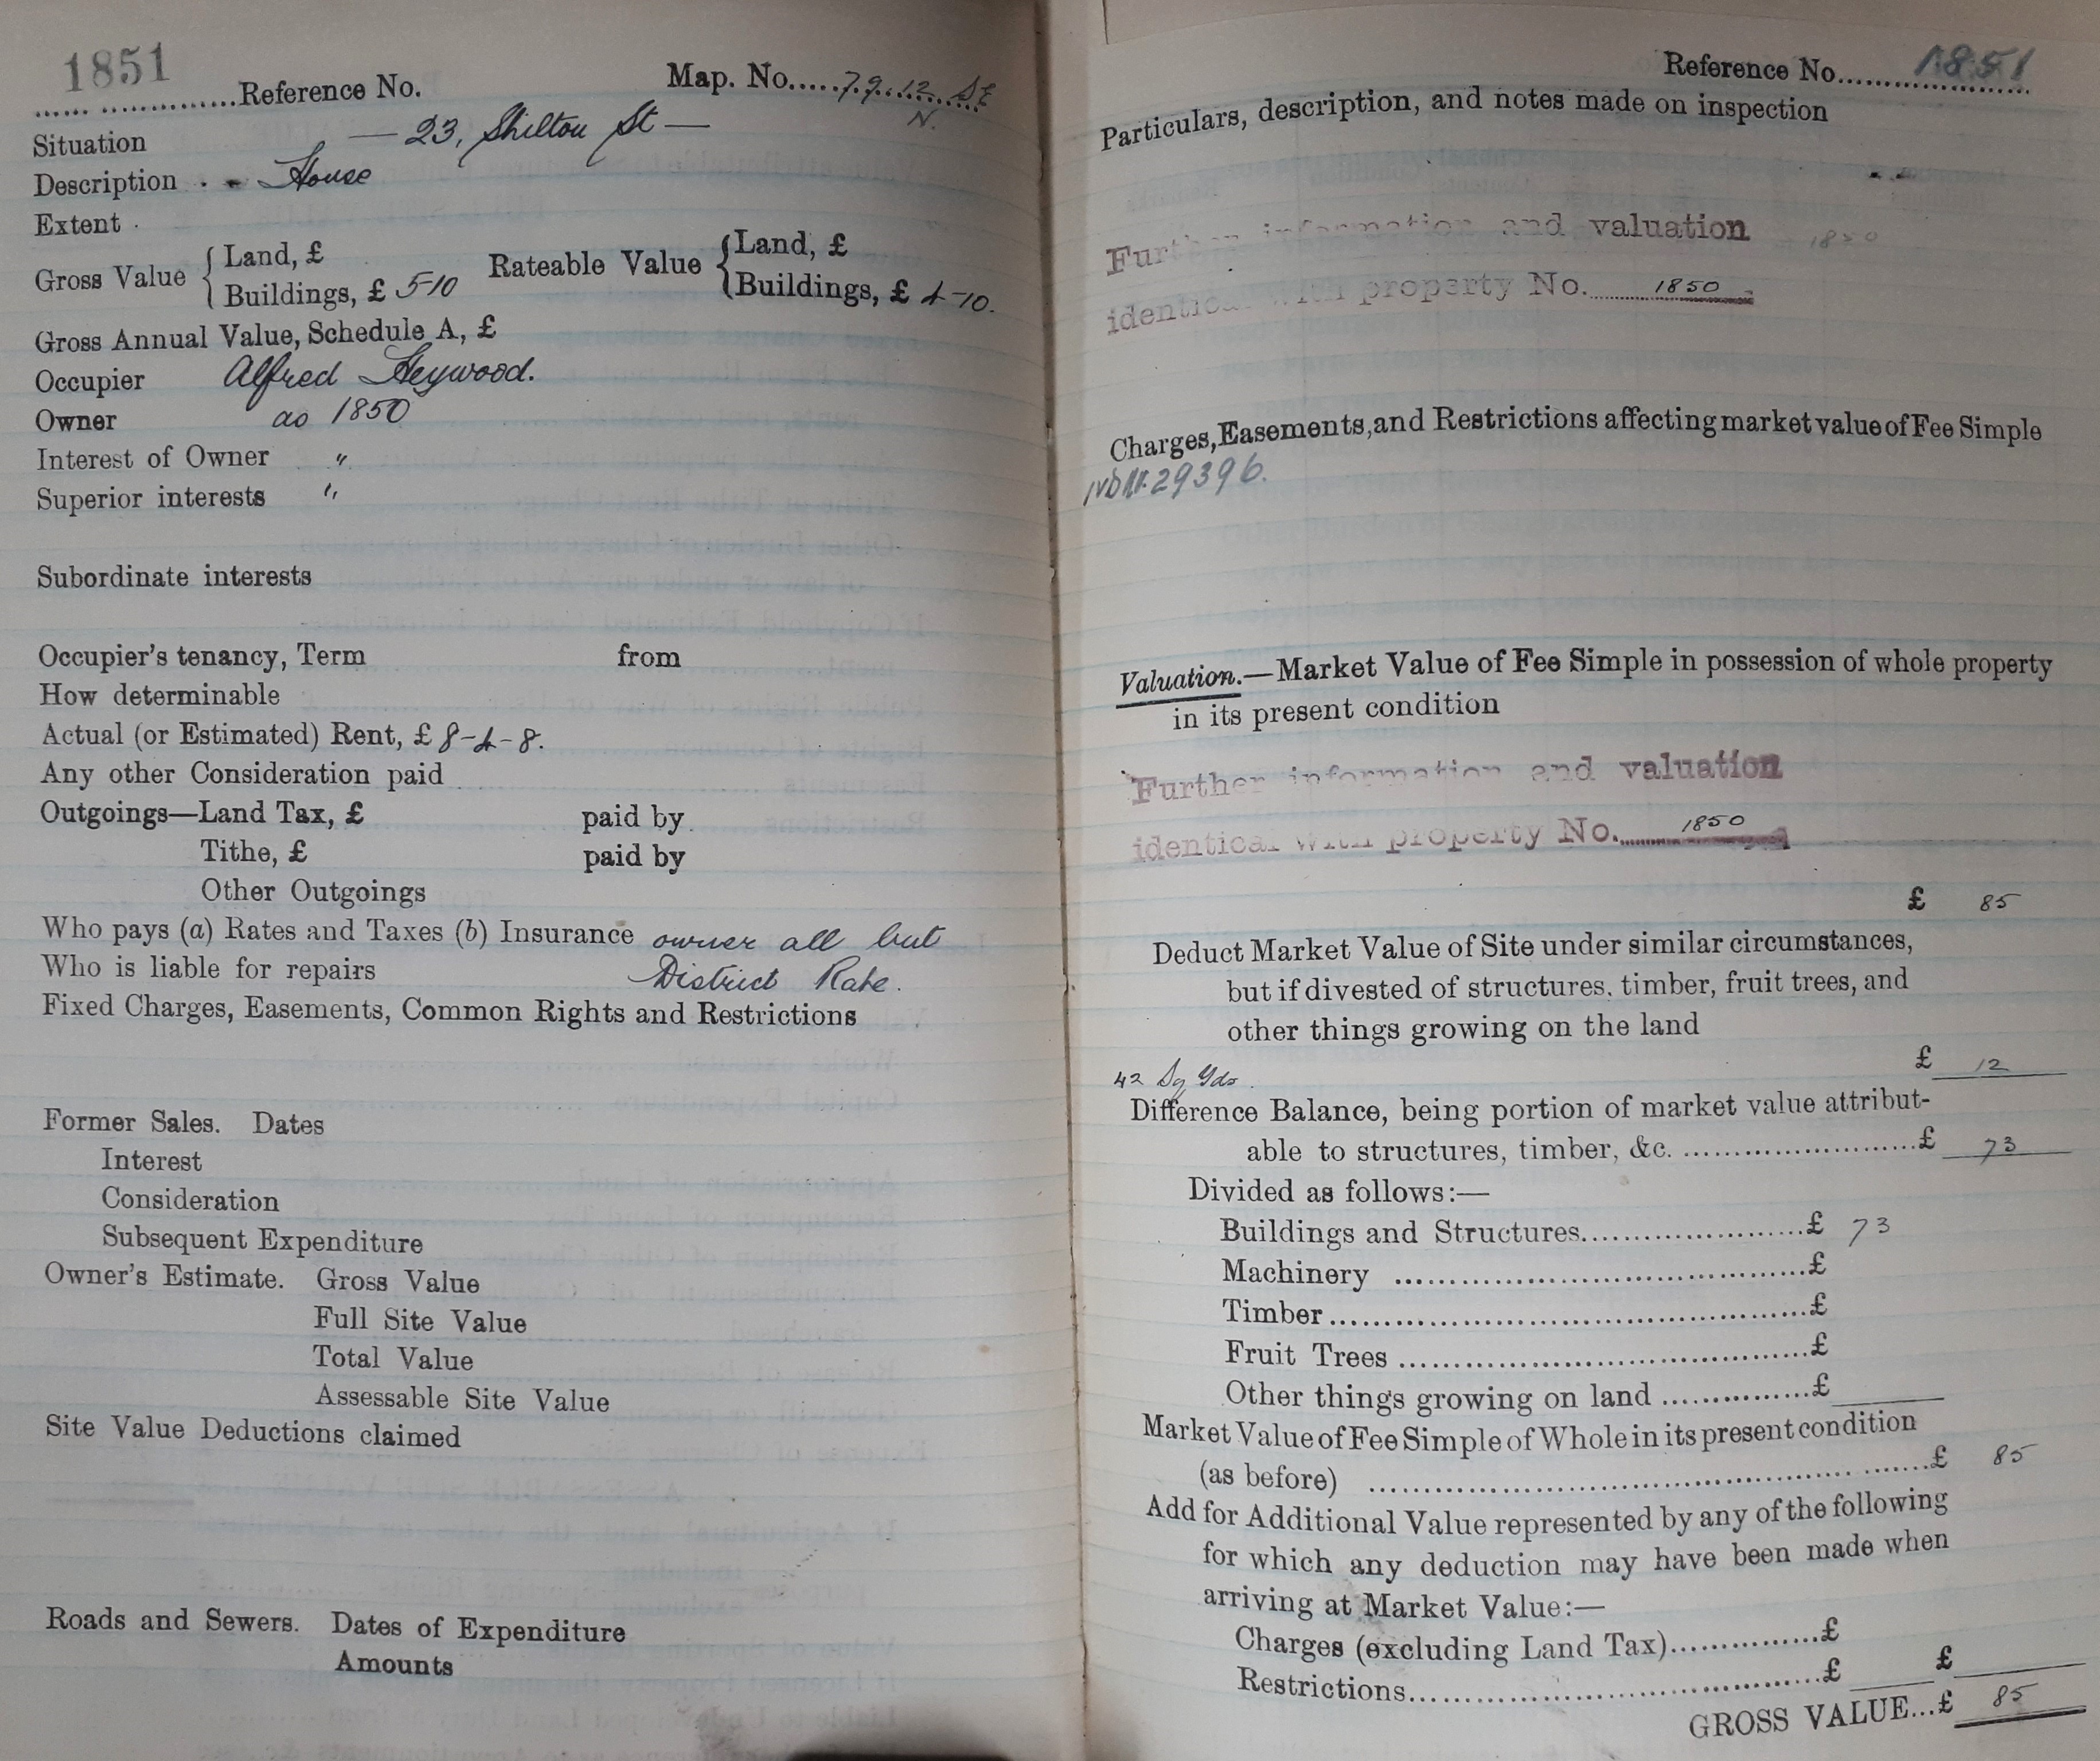 1851
Reference No. Map. No. 79.12 SE
N.
Situation — 23, Shilton St —
Description House
Extent
Gross Value { Land, £
Buildings, £ 5-10
Rateable Value { Land, £
Buildings, £ 4-10.
Gross Annual Value, Schedule A, £
Occupier Alfred Heywood.
Owner as 1850
Interest of Owner "
Superior interests "
Subordinate interests
Occupier's tenancy, Term from
How determinable
Actual (or Estimated) Rent, £ 8-4-8.
Any other Consideration paid
Outgoings—Land Tax, £ paid by
Tithe, £ paid by
Other Outgoings
Who pays (a) Rates and Taxes (b) Insurance owner all but
Who is liable for repairs District Rate.
Fixed Charges, Easements, Common Rights and Restrictions
Former Sales. Dates
Interest
Consideration
Subsequent Expenditure
Owner's Estimate. Gross Value
Full Site Value
Total Value
Assessable Site Value
Site Value Deductions claimed
Roads and Sewers. Dates of Expenditure
Amounts
Reference No. 1851
Particulars, description, and notes made on inspection
Further information and valuation 1850
identical with property No. 1850
Charges, Easements, and Restrictions affecting market value of Fee Simple
29396.
Valuation.—Market Value of Fee Simple in possession of whole property
in its present condition
Further information and valuation
identical with property No. 1850
£ 85
Deduct Market Value of Site under similar circumstances,
but if divested of structures, timber, fruit trees, and
other things growing on the land
£ 12
42 Sq Yds.
Difference Balance, being portion of market value attribut-
able to structures, timber, &c. £ 73
Divided as follows:—
Buildings and Structures £ 73
Machinery £
Timber £
Fruit Trees £
Other things growing on land £
Market Value of Fee Simple of Whole in its present condition
(as before) £ 85
Add for Additional Value represented by any of the following
for which any deduction may have been made when
arriving at Market Value:—
Charges (excluding Land Tax) £
Restrictions £ £
GROSS VALUE...£ 85